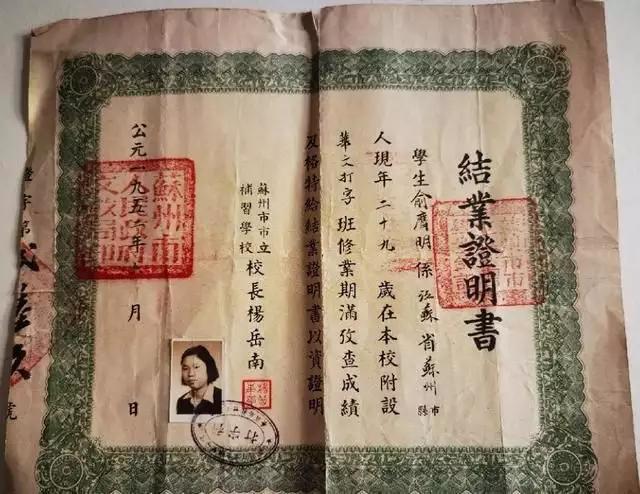 結業證明書
學生俞賡明係江蘇省蘇州市縣
人現年二十九歲在本校附設
華文打字班修業期滿攷查成績
及格特給結業證明書以資證明
蘇州市市立
補習學校
校長楊岳南
公元一九五 年 月 日
打字